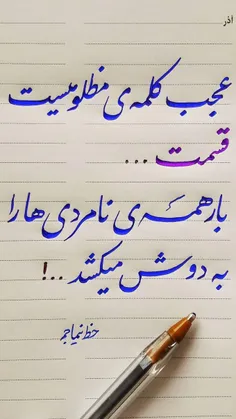 آذر
عجب کلمه‌ی مظلومیست
قسمت ...
بار همه‌ی نامردی ها را
به دوش میکشد ..!